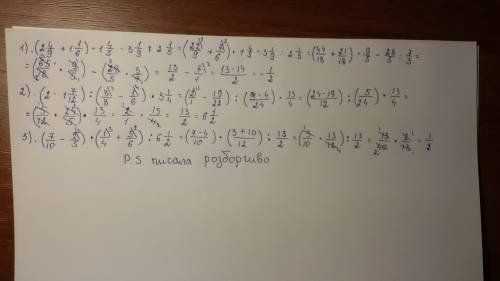 1).(2 4/9 + 1 1/6) · 1 4/5 - 3 1/9 : 2 1/3 = (22/9 + 7/6) · 1 4/5 - 3 1/9 : 2 1/3 = (44/18 + 21/18) · 9/5 - 28/5 : 7/3 =
= (65/18 · 9/5) - (28/5 · ) = 13/2 - 7/1 = 13-14/2 = - 1/2
2).(2 - 1 7/12) : (3/8 - 1/6) · 3 1/4 = (2/1 - 19/12) : (9-4/24) · 13/4 = (24-19/12) : (5/24) · 13/4 =
= (5/12 · 24/5) · 13/4 = 2/1 · 13/4 = 13/2 = 6 1/2
3).(7/10 - 2/5) · (1/4 + 5/6) : 6 1/2 = (7-4/10) · (3+10/12) : 13/2 = (3/10 · 13/12) : 13/2 = 13/40 · 2/13 = 1/2
P.S. писала розборчиво